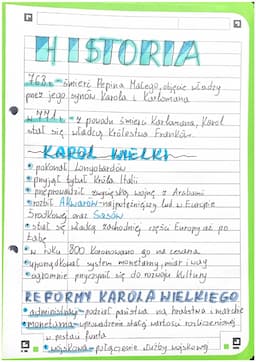 HISTORIA
768r. - śmierć Pepina Małego, objęcie władzy
przez jego synów Karola i Karlomana
w 771 r. - z powodu śmierci Karlomana, Karol
stał się władcą Królestwa Franków.
KAROL WIELKI
pokonał Longobardów
przyjął tytuł Króla Italii
przeprowadził zwycięską wojnę z Arabami
rozbił Akwarów - najpotężniejszy lud w Europie
Środkowej oraz Sasów
stał się władcą zachodniej części Europy aż po
Łabę
w roku 800 koronowano go na cesarza
uporządkował system monetarny, miar i wag
ogromnie przyczynił się do rozwoju kultury
REFORMY KAROLA WIELKIEGO
administracyjna - podział państwa na hrabstwa i marchie
monetarna - wprowadzenie stałej wartości rozliczeniowej
w postaci funta
wojskowa - połączenie służby wojskowej